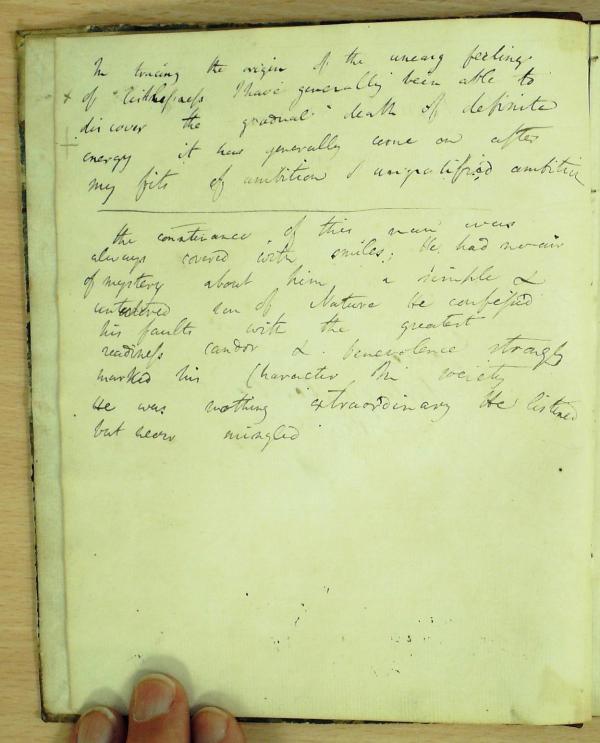 In tracing the origin of the uneasy feeling
of I have generally been able to
discover the gradual death of definite
energy it has generally come on after
my fits of ambition & ungratified ambition
the countenance of this man was
always covered with smiles; He had no air
of mystery about him, a simple &
son of Nature He confessed
his faults with the greatest
readiness candor & benevolence strongly
marked his Character In society
He was nothing extraordinary He listened
but never mingled